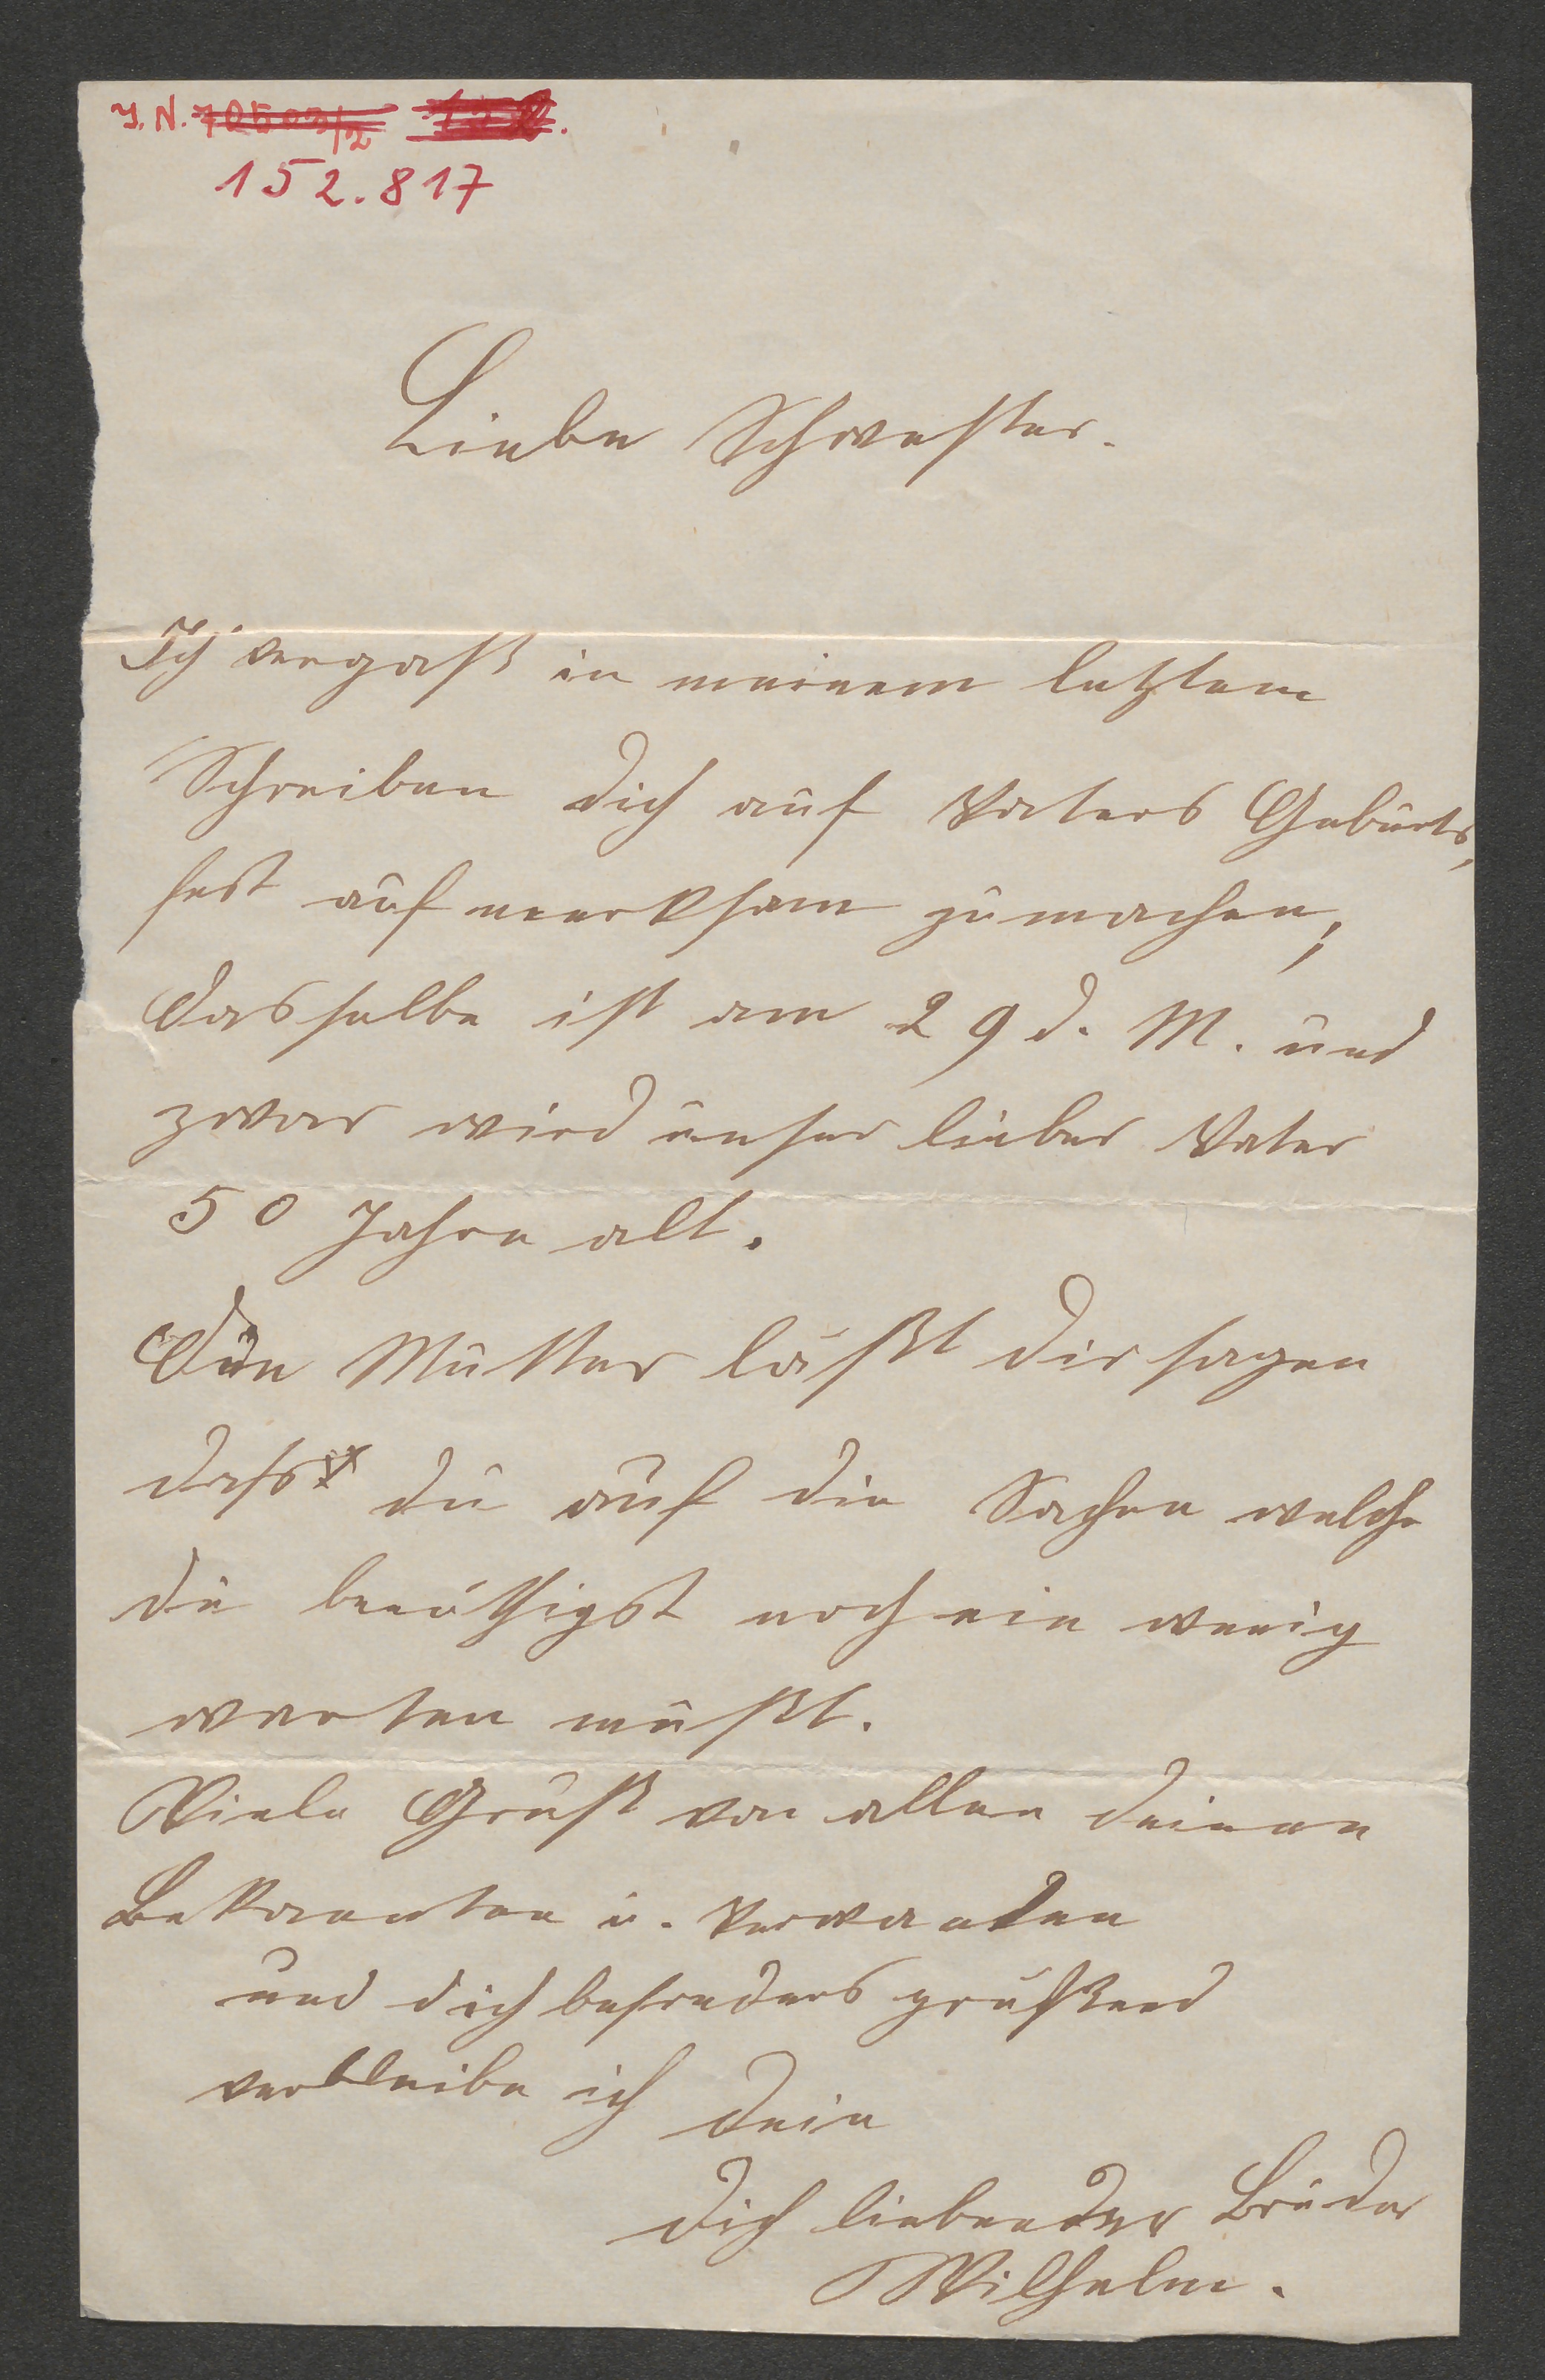 J. N.
152.817
Liebe Schwester.
Ich vergaß in meinem letztem
Schreiben dich auf Vaters Geburts,
fest aufmerksam zu machen,
dasselbe ist am 29 d. M. und
zwar wird unser lieber Vater
50 Jahre alt.
Die Mutter läßt dir sagen
dass du auf die Sachen welche
du benöthigst noch ein wenig
warten mußt.
Viele Grüß von allen deinen
Bekannten u. Verwanden
und dich besonders grüßend
verbleibe ich dein
dich liebender Bruder
Wilhelm.